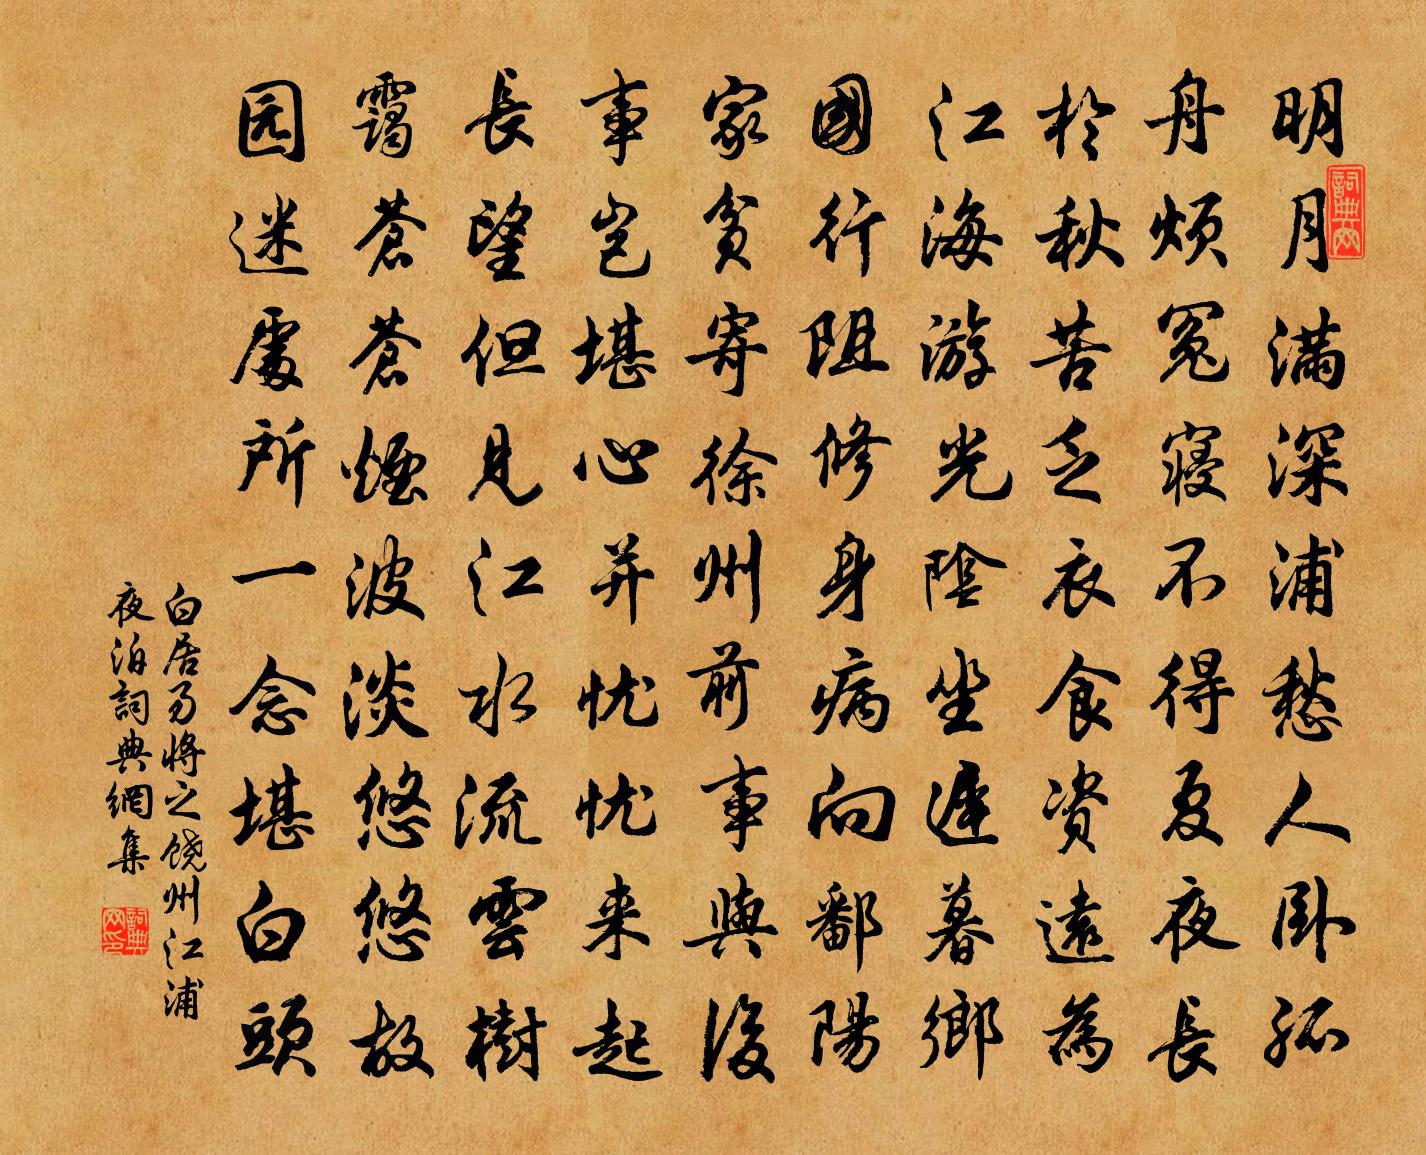 明月满深浦愁人卧孤
舟煩冤寝不得夏夜長
於秋苦乏衣食资遠為
江海游光陰坐遲暮鄉
國行阻修身病向鄱陽
家貧寄徐州前事與後
事豈堪心并忧忧来起
長望但見江水流雲樹
靄蒼蒼煙波淡悠悠故
园迷處所一念堪白頭
白居易將之饶州江浦
夜泊詞典網集
詞典网
詞典网印